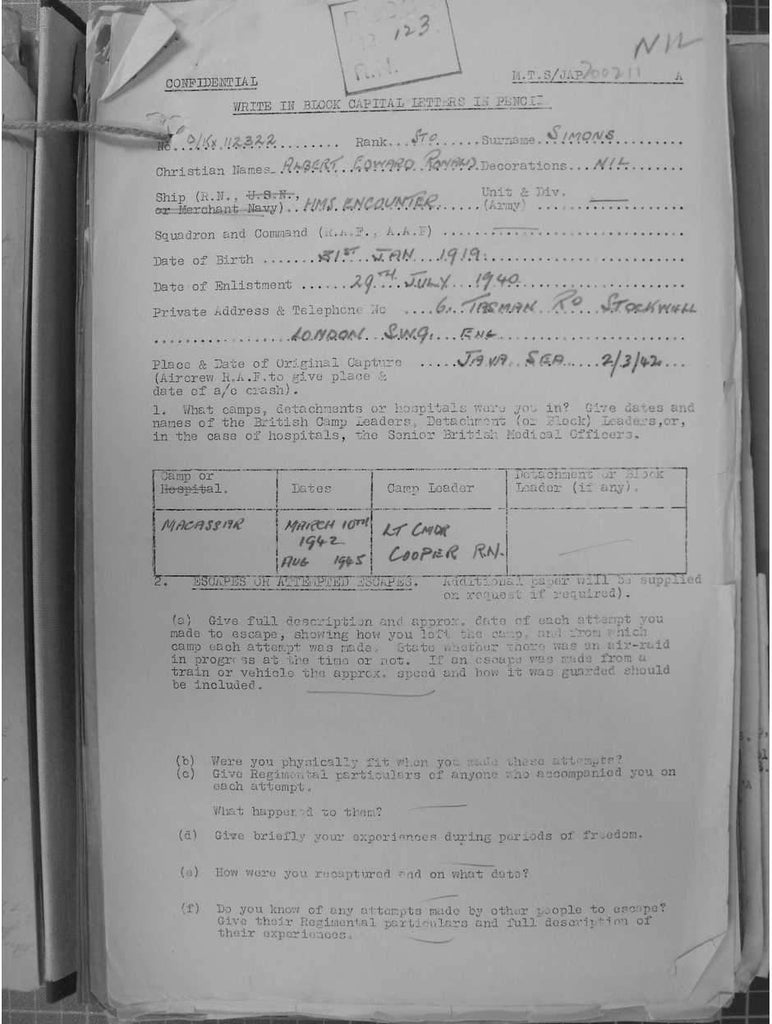 123.
NIL
CONFIDENTIAL M.T.S/JAP/200211 A
WRITE IN BLOCK CAPITAL LETTERS IN PENCIL
No. D/KX 112322 Rank STO Surname SIMONS
Christian Names ALBERT EDWARD RONALD Decorations NIL
Ship (R.N., U.S.N., Unit & Div.
or Merchant Navy) HMS. ENCOUNTER (Army)
Squadron and Command (R.A.F., A.A.F)
Date of Birth 31ST JAN 1919.
Date of Enlistment 29TH JULY 1940
Private Address & Telephone No 6. TASMAN RD STOCKWELL
LONDON S.W.9. ENG
Place & Date of Original Capture JAVA SEA 2/3/42
(Aircrew R.A.F.to give place &
date of a/c crash).
1. What camps, detachments or hospitals were you in? Give dates and
names of the British Camp Leaders, Detachment (or Block) Leaders,or,
in the case of hospitals, the Senior British Medical Officers.
Camp or Detachment or Block
Hospital. Dates Camp Leader Leader (if any).
MACASSAR MARCH 10TH LT CMDR
1942 COOPER RN.
AUG 1945
2. ESCAPES OR ATTEMPTED ESCAPES. Additional paper will be supplied
on request if required).
(a) Give full description and approx. date of each attempt you
made to escape, showing how you left the camp, and from which
camp each attempt was made. State whether there was an air-raid
in progress at the time or not. If an escape was made from a
train or vehicle the approx. speed and how it was guarded should
be included.
(b) Were you physically fit when you made these attempts?
(c) Give Regimental particulars of anyone who accompanied you on
each attempt.
What happened to them?
(d) Give briefly your experiences during periods of freedom.
(e) How were you recaptured and on what date?
(f) Do you know of any attempts made by other people to escape?
Give their Regimental particulars and full description of
their experiences.